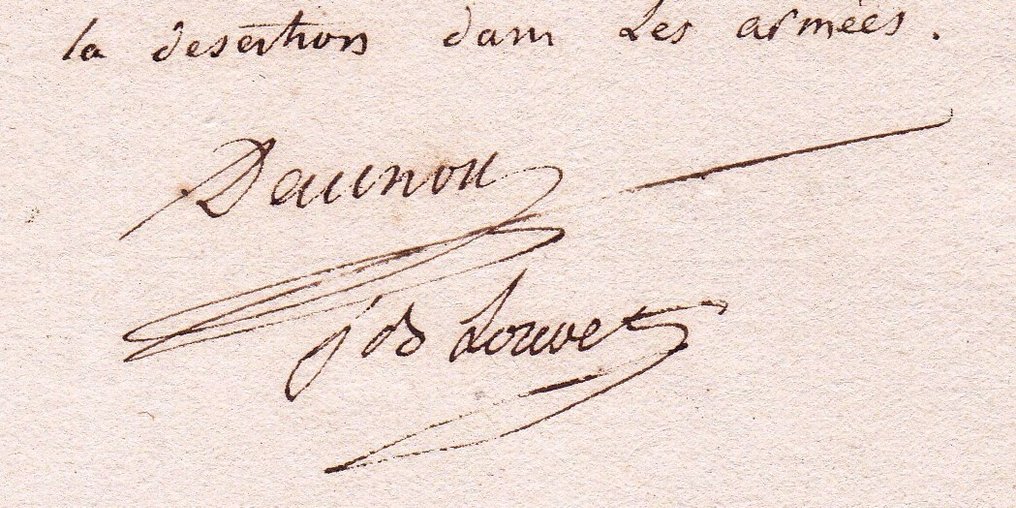 la desertion dans les armées.
Daunou
J B Louvet